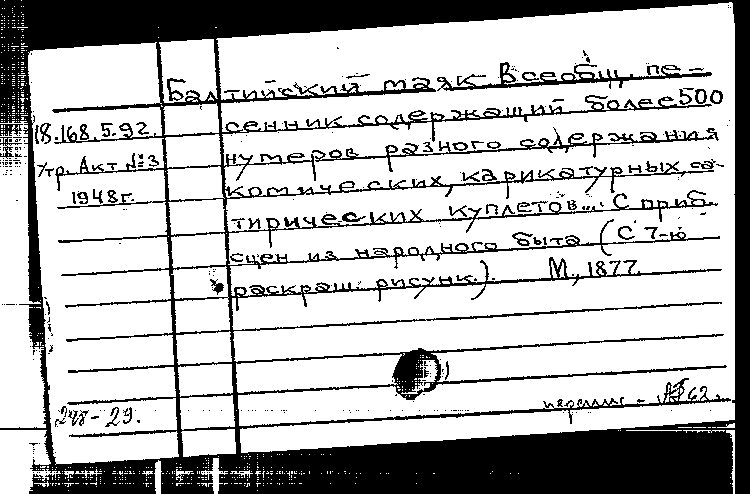 Балтийский маяк Всеобщ. пе-
18.168.5.92. сенник содержащий более 500
Утр. Акт №3 нумеров разного содержания
1948г. комических, карикатурных, са-
тирических куплетов... С приб.
сцен из народного быта (С 7-ю
раскраш. рисунк.). М, 1877.
248-29.